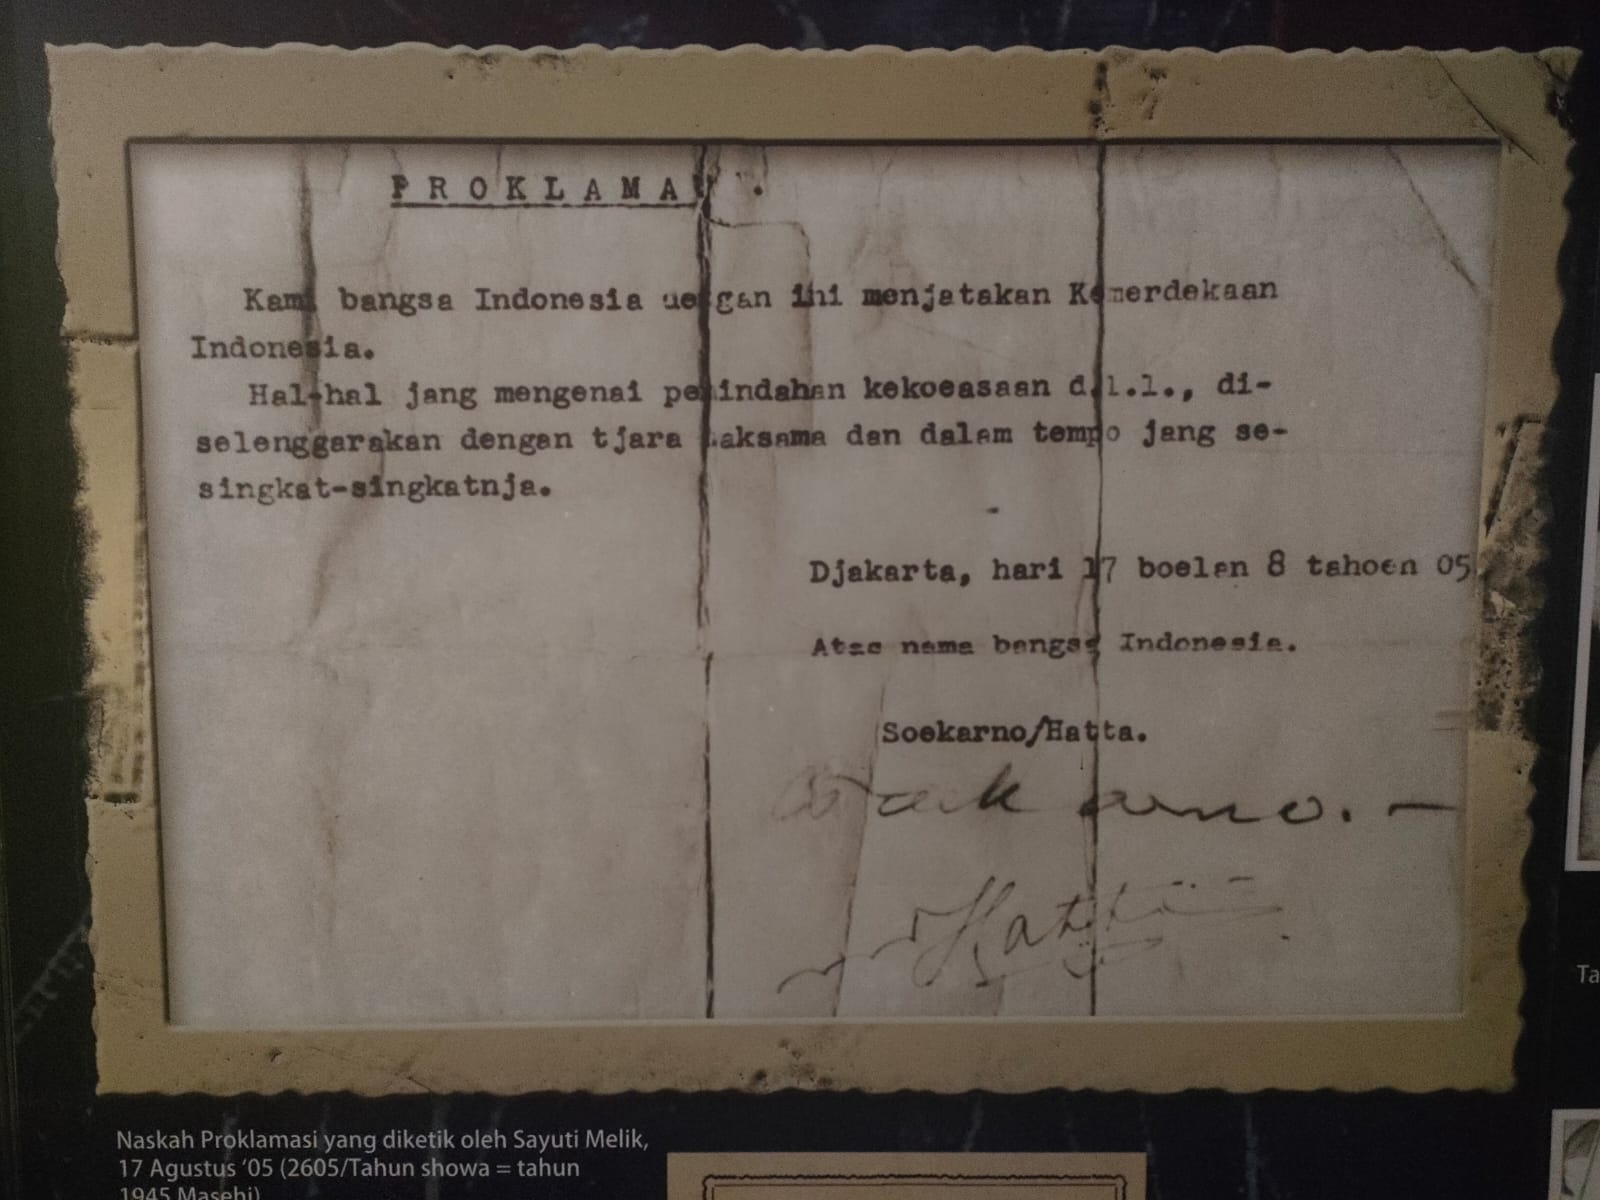 PROKLAMASI.
Kami bangsa Indonesia dengan ini menjatakan Kemerdekaan
Indonesia.
Hal-hal jang mengenai pemindahan kekoeasaan d.l.l., di-
selenggarakan dengan tjara saksama dan dalam tempo jang se-
singkat-singkatnja.
Djakarta, hari 17 boelan 8 tahoen 05
Atas nama bangsa Indonesia.
Soekarno/Hatta.
Soekarno.-
Hatta
Naskah Proklamasi yang diketik oleh Sayuti Melik,
17 Agustus '05 (2605/Tahun showa = tahun
1945 Masehi)
Ta